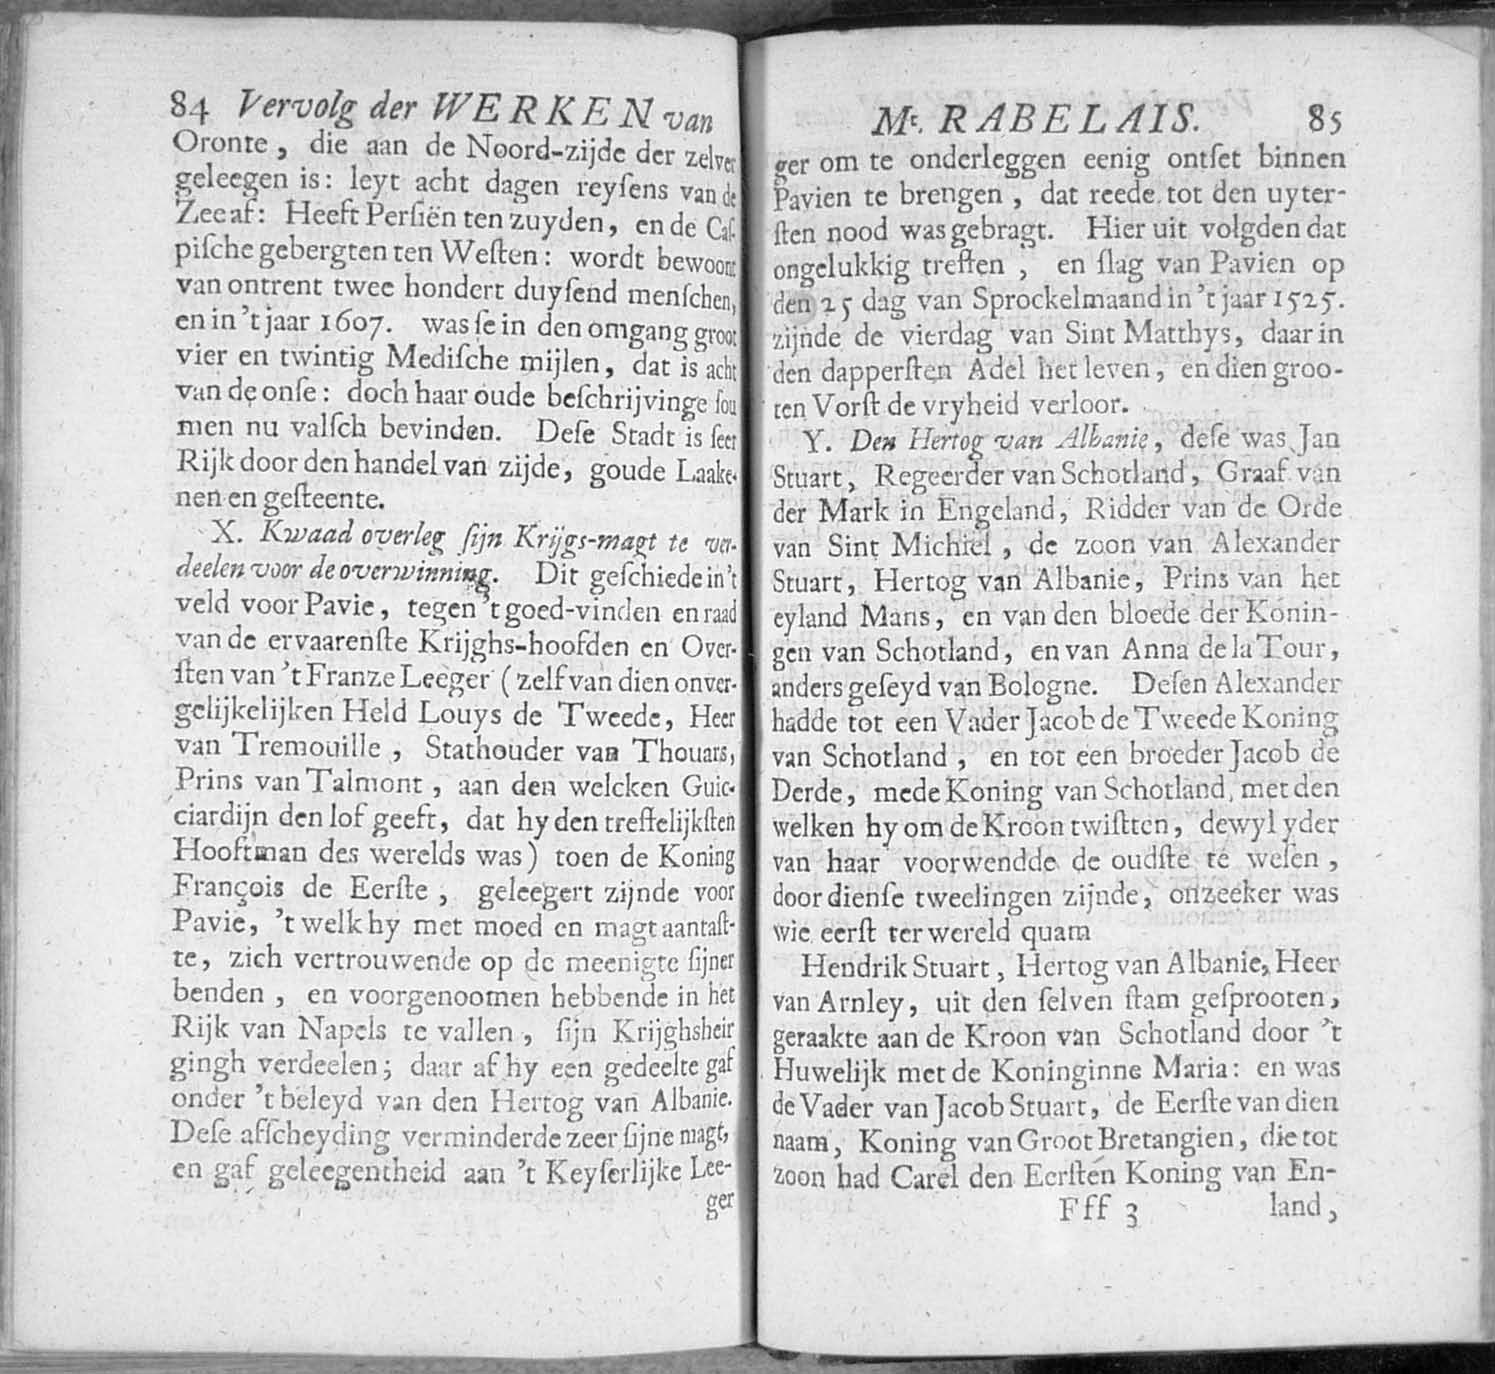 84 Vervolg der WERKEN van
Oronte, die aan de Noord-zijde der zelver
geleegen is: leyt acht dagen reyſens van de
Zee af: Heeft Perſiën ten zuyden, en de Caſ-
piſche gebergten ten Weſten: wordt bewoont
van ontrent twee hondert duyſend menſchen,
en in 't jaar 1607. was ſe in den omgang groot
vier en twintig Mediſche mijlen, dat is acht
van de onſe: doch haar oude beſchrijvinge ſou
men nu valſch bevinden. Deſe Stadt is ſeer
Rijk door den handel van zijde, goude Laake-
nen en geſteente.
X. Kwaad overleg ſijn Krijgs-magt te ver-
deelen voor de overwinning. Dit geſchiede in 't
veld voor Pavie, tegen 't goed-vinden en raad
van de ervaarenſte Krijghs-hoofden en Over-
ſten van 't Franze Leeger (zelf van dien onver-
gelijkelijken Held Louys de Tweede, Heer
van Tremouille, Stathouder van Thouars,
Prins van Talmont, aan den welcken Guic-
ciardijn den lof geeft, dat hy den treffelijkſten
Hooftman des werelds was) toen de Koning
François de Eerſte, geleegert zijnde voor
Pavie, 't welk hy met moed en magt aantaſt-
te, zich vertrouwende op de meenigte ſijner
benden, en voorgenoomen hebbende in het
Rijk van Napels te vallen, ſijn Krijghsheir
gingh verdeelen; daar af hy een gedeelte gaf
onder 't beleyd van den Hertog van Albanie.
Deſe afſcheyding verminderde zeer ſijne magt,
en gaf geleegentheid aan 't Keyſerlijke Lee-
ger
Mr. RABELAIS. 85
ger om te onderleggen eenig ontſet binnen
Pavien te brengen, dat reede tot den uyter-
ſten nood was gebragt. Hier uit volgden dat
ongelukkig treffen, en ſlag van Pavien op
den 25 dag van Sprockelmaand in 't jaar 1525.
zijnde de vierdag van Sint Matthys, daar in
den dapperſten Adel het leven, en dien groo-
ten Vorſt de vryheid verloor.
Y. Den Hertog van Albanie, deſe was Jan
Stuart, Regeerder van Schotland, Graaf van
der Mark in Engeland, Ridder van de Orde
van Sint Michiel, de zoon van Alexander
Stuart, Hertog van Albanie, Prins van het
eyland Mans, en van den bloede der Konin-
gen van Schotland, en van Anna de la Tour,
anders geſeyd van Bologne. Deſen Alexander
hadde tot een Vader Jacob de Tweede Koning
van Schotland, en tot een broeder Jacob de
Derde, mede Koning van Schotland, met den
welken hy om de Kroon twiſtten, dewyl yder
van haar voorwendde de oudſte te weſen,
door dienſe tweelingen zijnde, onzeeker was
wie eerſt ter wereld quam
Hendrik Stuart, Hertog van Albanie, Heer
van Arnley, uit den ſelven ſtam geſprooten,
geraakte aan de Kroon van Schotland door 't
Huwelijk met de Koninginne Maria: en was
de Vader van Jacob Stuart, de Eerſte van dien
naam, Koning van Groot Bretangien, die tot
zoon had Carel den Eerſten Koning van En-
Fff 3 land,